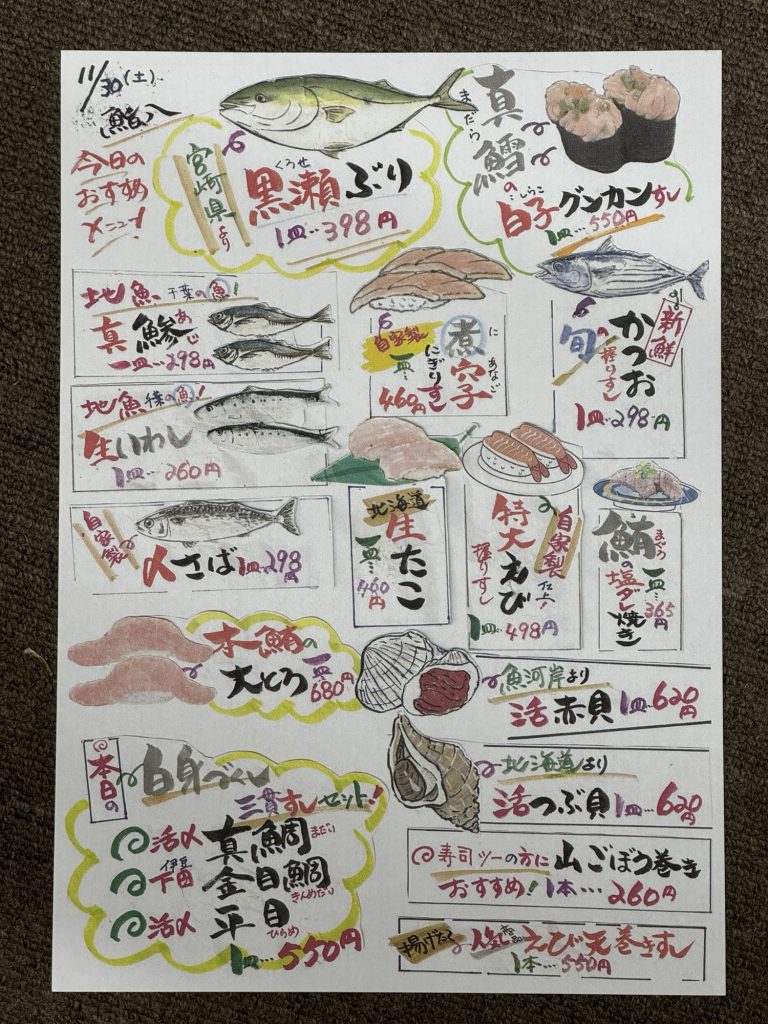 11/30(土)
鮨八
今日の
おすすめ
メニュー!
宮崎県より
くろせ
黒瀬ぶり
1皿…398円
まだら
真鱈の
しらこ
白子グンカンすし
1皿…550円
地魚 千葉の魚!
真鯵
あじ
一皿…298円
自家製
煮穴子
に あなご
にぎりすし
一皿…
460円
新鮮
旬の
かつお
握りすし
1皿…298円
地魚 千葉の魚!
生いわし
1皿…260円
自家製
〆さば 1皿…298円
北海道
生たこ
一皿…
460円
自家製
仕上!
特大えび
握りすし
1皿…498円
鮪の
まぐろ
塩ダレ
焼き
一皿…
365円
本鮪の
大とろ 一皿
680円
魚河岸より
活赤貝 1皿…620円
北海道より
活つぶ貝 1皿…620円
本日の
白身づくし
三貫すしセット!
活〆 真鯛 まだい
伊豆
下田 金目鯛
きんめだい
活〆 平目
ひらめ
1皿…550円
寿司ツーの方に 山ごぼう巻き
おすすめ! 1本…260円
揚げたて 人気 えび天巻きすし
1本…550円